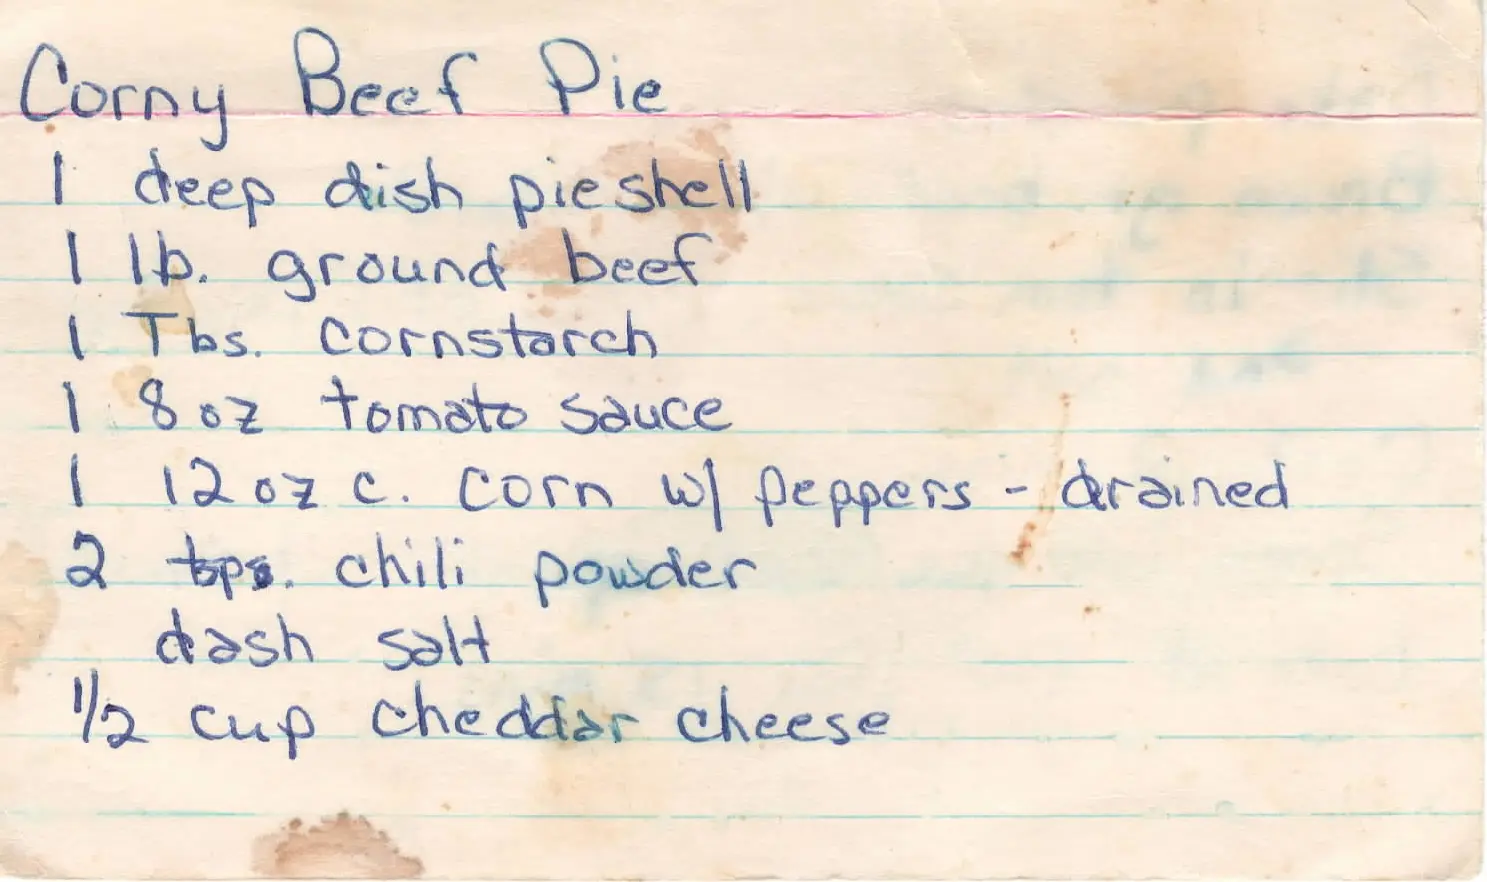 Corny Beef Pie
1 deep dish pie shell
1 lb. ground beef
1 Tbs. cornstarch
1 8 oz tomato sauce
1 12 oz c. corn w/ peppers - drained
2 tps. chili powder
dash salt
1/2 cup cheddar cheese